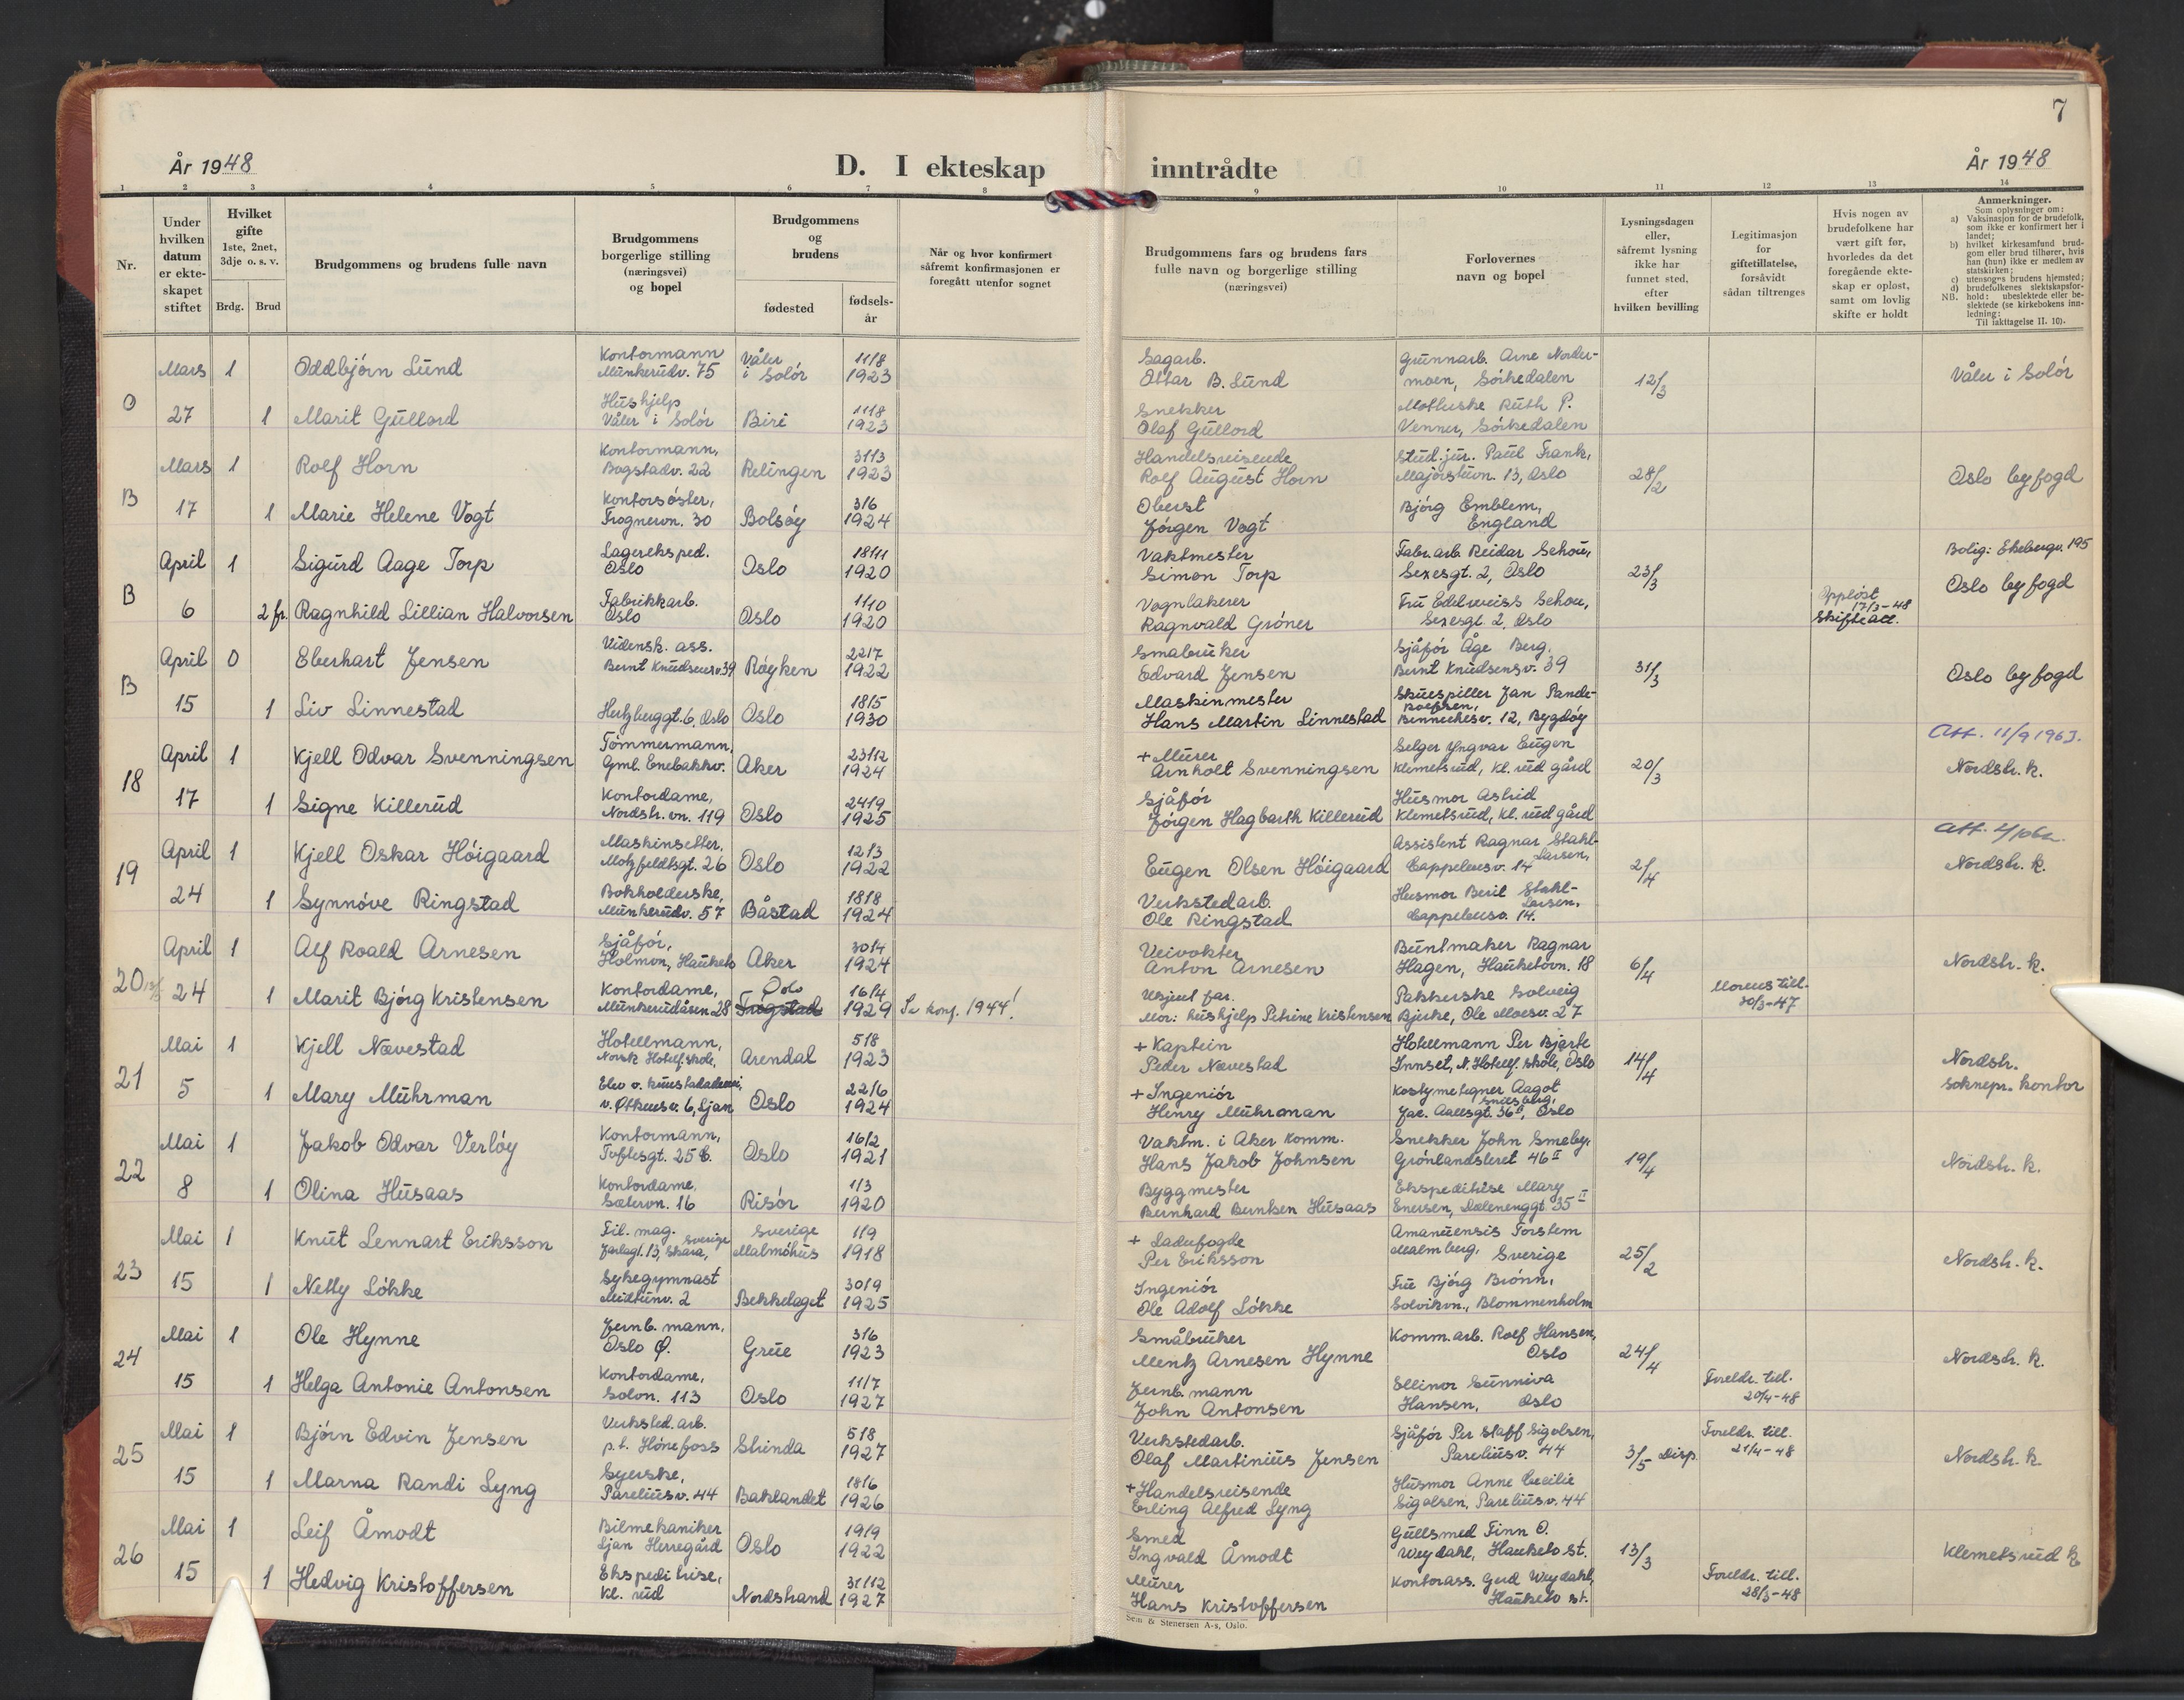 7
År 1948
D. I ekteskap inntrådte
År 1948
1 2 3 4 5 6 7 8 9 10 11 12 13 14
Nr.
Under hvilken datum er ekteskapet stiftet
Hvilket gifte
1ste, 2net, 3dje o. s. v.
Brdg. Brud
Brudgommens og brudens fulle navn
Brudgommens borgerlige stilling (næringsvei) og bopel
Brudgommens og brudens
fødested
fødsels-år
Når og hvor konfirmert såfremt konfirmasjonen er foregått utenfor sognet
Brudgommens fars og brudens fars fulle navn og borgerlige stilling (næringsvei)
Forlovernes navn og bopel
Lysningsdagen eller, såfremt lysning ikke har funnet sted, efter hvilken bevilling
Legitimasjon for giftetillatelse, forsåvidt sådan tiltrenges
Hvis nogen av brudefolkene har vært gift før, hvorledes da det foregående ekteskap er opløst, samt om lovlig skifte er holdt
Anmerkninger.
Som oplysninger om:
a) Vaksinasjon for de brudefolk, som ikke er konfirmert her i landet;
b) hvilket kirkesamfund brudgom eller brud tilhører, hvis han (hun) ikke er medlem av statskirken;
c) utensogns brudens hjemsted;
d) brudefolkenes slektskapsforhold: ubeslektede eller beslektede (se kirkebokens innledning:
NB.
Til iakttagelse II. 10).
O Mars 1 Oddbjørn Lund Kontormann Munkerudv. 75 Våler i Solør 11/8 1923 Sagarb. Ottar B. Lund Grunnarb. Arne Nordermoen, Sørkedalen 12/3 Våler i Solør
27 1 Marit Gullord Hushjelp Våler i Solør Biri 11/8 1923 Snekker Olaf Gullord Ruth P. Venner, Sørkedalen
B Mars 1 Rolf Horn Kontormann, Bogstadv. 22 Relingen 31/3 1923 Handelsreisende Rolf August Horn Stud.jur. Paul Frank, Majorstuvn. 13, Oslo 28/2 Oslo byfogd
17 1 Marie Helene Vogt Kontorsøster, Frognervn. 30 Bolsøy 3/6 1924 Oberst Jørgen Vogt Bjørg Emblem, England
B April 1 Sigurd Aage Torp Lagereksped. Oslo Oslo 18/11 1920 Vaktmester Simon Torp Fabr.arb. Reidar Schou, Sexesgt. 2, Oslo 23/3 Bolig: Ekebergv. 195 Oslo byfogd
6 2 fr. Ragnhild Lillian Halvorsen Fabrikkarb. Oslo Oslo 1/10 1920 Vognlakerer Ragnvald Grøner Fru Edelweiss Schou, Sexesgt. 2, Oslo Oppløst 17/3-48 Skifteatt.
B April 0 Eberhart Jensen Vidensk. ass. Bernt Knudsensv. 39 Røyken 22/7 1922 Småbruker Edvard Jensen Sjåfør Åge Berg, Bernt Knudsensv. 39 31/3 Oslo byfogd
15 1 Liv Linnestad Hertzberggt. 6, Oslo Oslo 18/5 1930 Maskinmester Hans Martin Linnestad Skuespiller Jan Bennechesv. 12, Bygdøy
18 April 1 Kjell Odvar Svenningsen Tømmermann, Gml. Enebakkv. Aker 23/12 1924 + Murer Arnholt Svenningsen Selger Yngvar Eugen Klemetsrud, Kl.rud gård 20/3 Att. 11/9 1963. Nordstr. k.
17 1 Signe Killerud Kontordame, Nordstr.vn. 119 Oslo 24/9 1925 Sjåfør Jørgen Hagbarth Killerud Husmor Astrid Klemetsrud, Kl.rud gård
19 April 1 Kjell Oskar Høigaard Maskinsetter, Motzfeldtsgt. 26 Oslo 12/3 1922 Eugen Olsen Høigaard Assistent Ragnar Stahl-Larsen, Cappelensv. 14 2/4 Nordstr. k.
24 1 Synnøve Ringstad Bokholderske, Munkerudv. 57 Båstad 18/8 1924 Verkstedarb. Ole Ringstad Husmor Beril Stahl-Larsen, Cappelensv. 14.
20 April 1 Alf Roald Arnesen Sjåfør, Holmvn, Hauketo Aker 30/4 1924 Veivokter Anton Arnesen Buntmaker Ragnar Hagen, Hauketovn. 18 6/4 Nordstr. k.
24 1 Marit Bjørg Kristensen Kontordame, Munkerudåsen 28 Trøgstad Oslo 16/4 1929 Se konf. 1944! Ukjent far. Mor: hushjelp Petrine Kristensen Pakkerske Solveig Bjerke, Ole Moesv. 27 Morens till. 30/3-47
21 Mai 1 Kjell Nævestad Hotellmann, Norsk Hotelf.skole, Arendal 5/8 1923 + Kaptein Peder Nævestad Hotellmann Per Bjarte Innset, N. Hotelf. skole, Oslo 14/4 Nordstr. soknepr. kontor
5 1 Mary Muhrman Elev v. kunstakademi, v. Otkuesv. 6, Ljan Oslo 22/6 1924 + Ingeniør Henry Muhrman Kostymetegner Aagot Jac. Aallsgt. 36, Oslo
22 Mai 1 Jakob Odvar Verløy Kontormann, Toftesgt. 25 Oslo 16/2 1921 Vaktm. i Aker komm. Hans Jakob Johnsen Snekker John Smeby, Grønlandsleret 46 II 19/4 Nordstr. k.
8 1 Olina Husaas Kontordame, Sætervn. 16 Risør 1/3 1920 Byggmester Bernhard Berntsen Husaas Ekspeditrise Mary Enersen, Dælenenggt 35 II
23 Mai 1 Knut Lennart Eriksson Fil. mag. Jarlagt. 13, Skara, Sverige Sverige Malmøhus 1/9 1918 + Ladufogde Per Eriksson Amanuensis Torstem Malmberg, Sverige 25/2 Nordstr. k.
15 1 Nelly Løkke Sykegymnast Midtunv. 2 Bekkelaget 30/9 1925 Ingeniør Ole Adolf Løkke Fru Bjørg Brønn, Solvikvn., Blommenholm
24 Mai 1 Ole Hynne Jernb.mann, Oslo Ø. Grue 3/6 1923 Småbruker Mentz Arnesen Hynne Komm.arb. Rolf Hansen, Oslo 24/4 Nordstr. k.
15 1 Helga Antonie Antonsen Kontordame, Solvn. 113 Oslo 11/7 1927 Jernb.mann John Antonsen Ellinor Sunniva Hansen, Oslo Foreldr. till. 20/4-48
25 Mai 1 Bjørn Edvin Jensen Verksted.arb. p.t. Hønefoss Strinda 5/8 1927 Verkstedarb. Olaf Martinius Jensen Sjåfør Per Staff Sigolsen, Pareliusv. 44 3/5 Disp. Foreldr. till. 21/4-48 Nordstr. k.
15 1 Marna Randi Lyng Syerske, Pareliusv. 44 Baklandet 18/6 1926 + Handelsreisende Erling Alfred Lyng Husmor Anne Cecilie Sigolsen, Pareliusv. 44
26 Mai 1 Leif Åmodt Bilmekaniker Ljan Herregård Oslo 19/9 1922 Smed Ingvald Åmodt Gullsmed Finn O. Weydahl, Hauketo st. 13/3 Klemetsrud k
15 1 Hedvig Kristoffersen Ekspeditrise, Kl.rud Nordstrand 31/12 1927 Murer Hans Kristoffersen Kontorass. Gerd Weydahl, Hauketo st. Foreldr. till. 28/3-48
Sem & Stenersen A-s, Oslo.